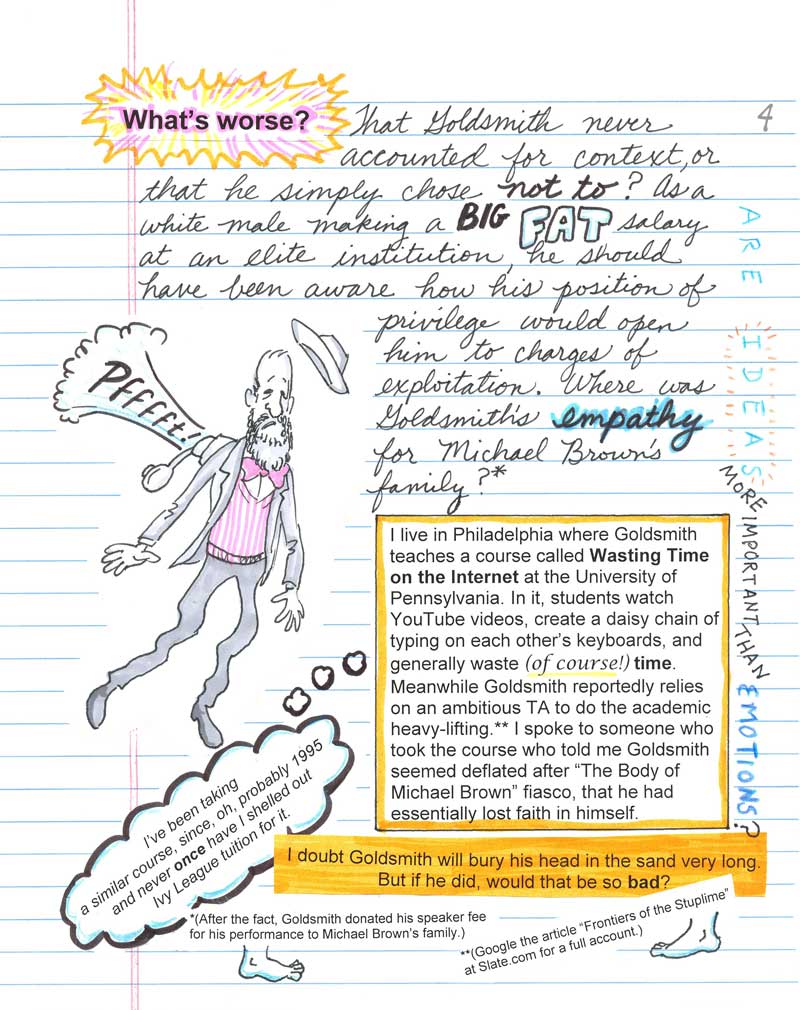 4
What's worse? That Goldsmith never
accounted for context, or
that he simply chose not to? As a
white male making a BIG FAT salary
at an elite institution, he should
have been aware how his position of
privilege would open
him to charges of
exploitation. Where was
Goldsmith's empathy
for Michael Brown's
family?*
Pfffft!
ARE IDEAS MORE IMPORTANT THAN EMOTIONS?
I live in Philadelphia where Goldsmith
teaches a course called Wasting Time
on the Internet at the University of
Pennsylvania. In it, students watch
YouTube videos, create a daisy chain of
typing on each other's keyboards, and
generally waste (of course!) time.
Meanwhile Goldsmith reportedly relies
on an ambitious TA to do the academic
heavy-lifting.** I spoke to someone who
took the course who told me Goldsmith
seemed deflated after “The Body of
Michael Brown” fiasco, that he had
essentially lost faith in himself.
I've been taking
a similar course, since, oh, probably 1995
and never once have I shelled out
Ivy League tuition for it.
I doubt Goldsmith will bury his head in the sand very long.
But if he did, would that be so bad?
*(After the fact, Goldsmith donated his speaker fee
for his performance to Michael Brown's family.)
**(Google the article “Frontiers of the Stuplime”
at Slate.com for a full account.)